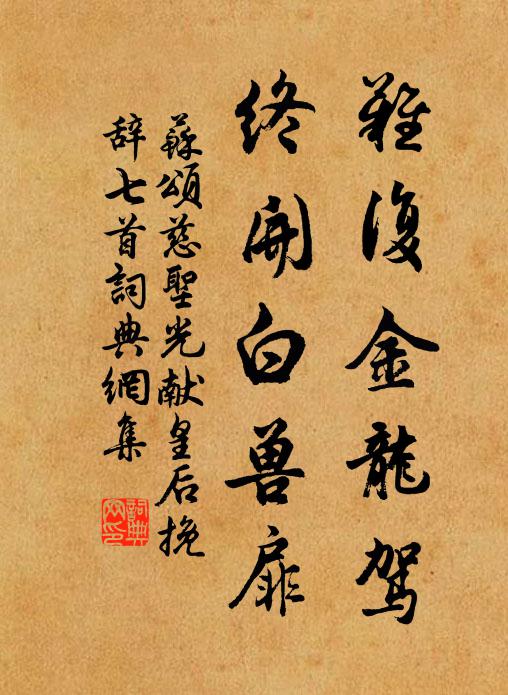 難復金龍駕
終開白兽扉
蘇頌慈聖光献皇后挽
辞七首詞典網集
詞典
网印